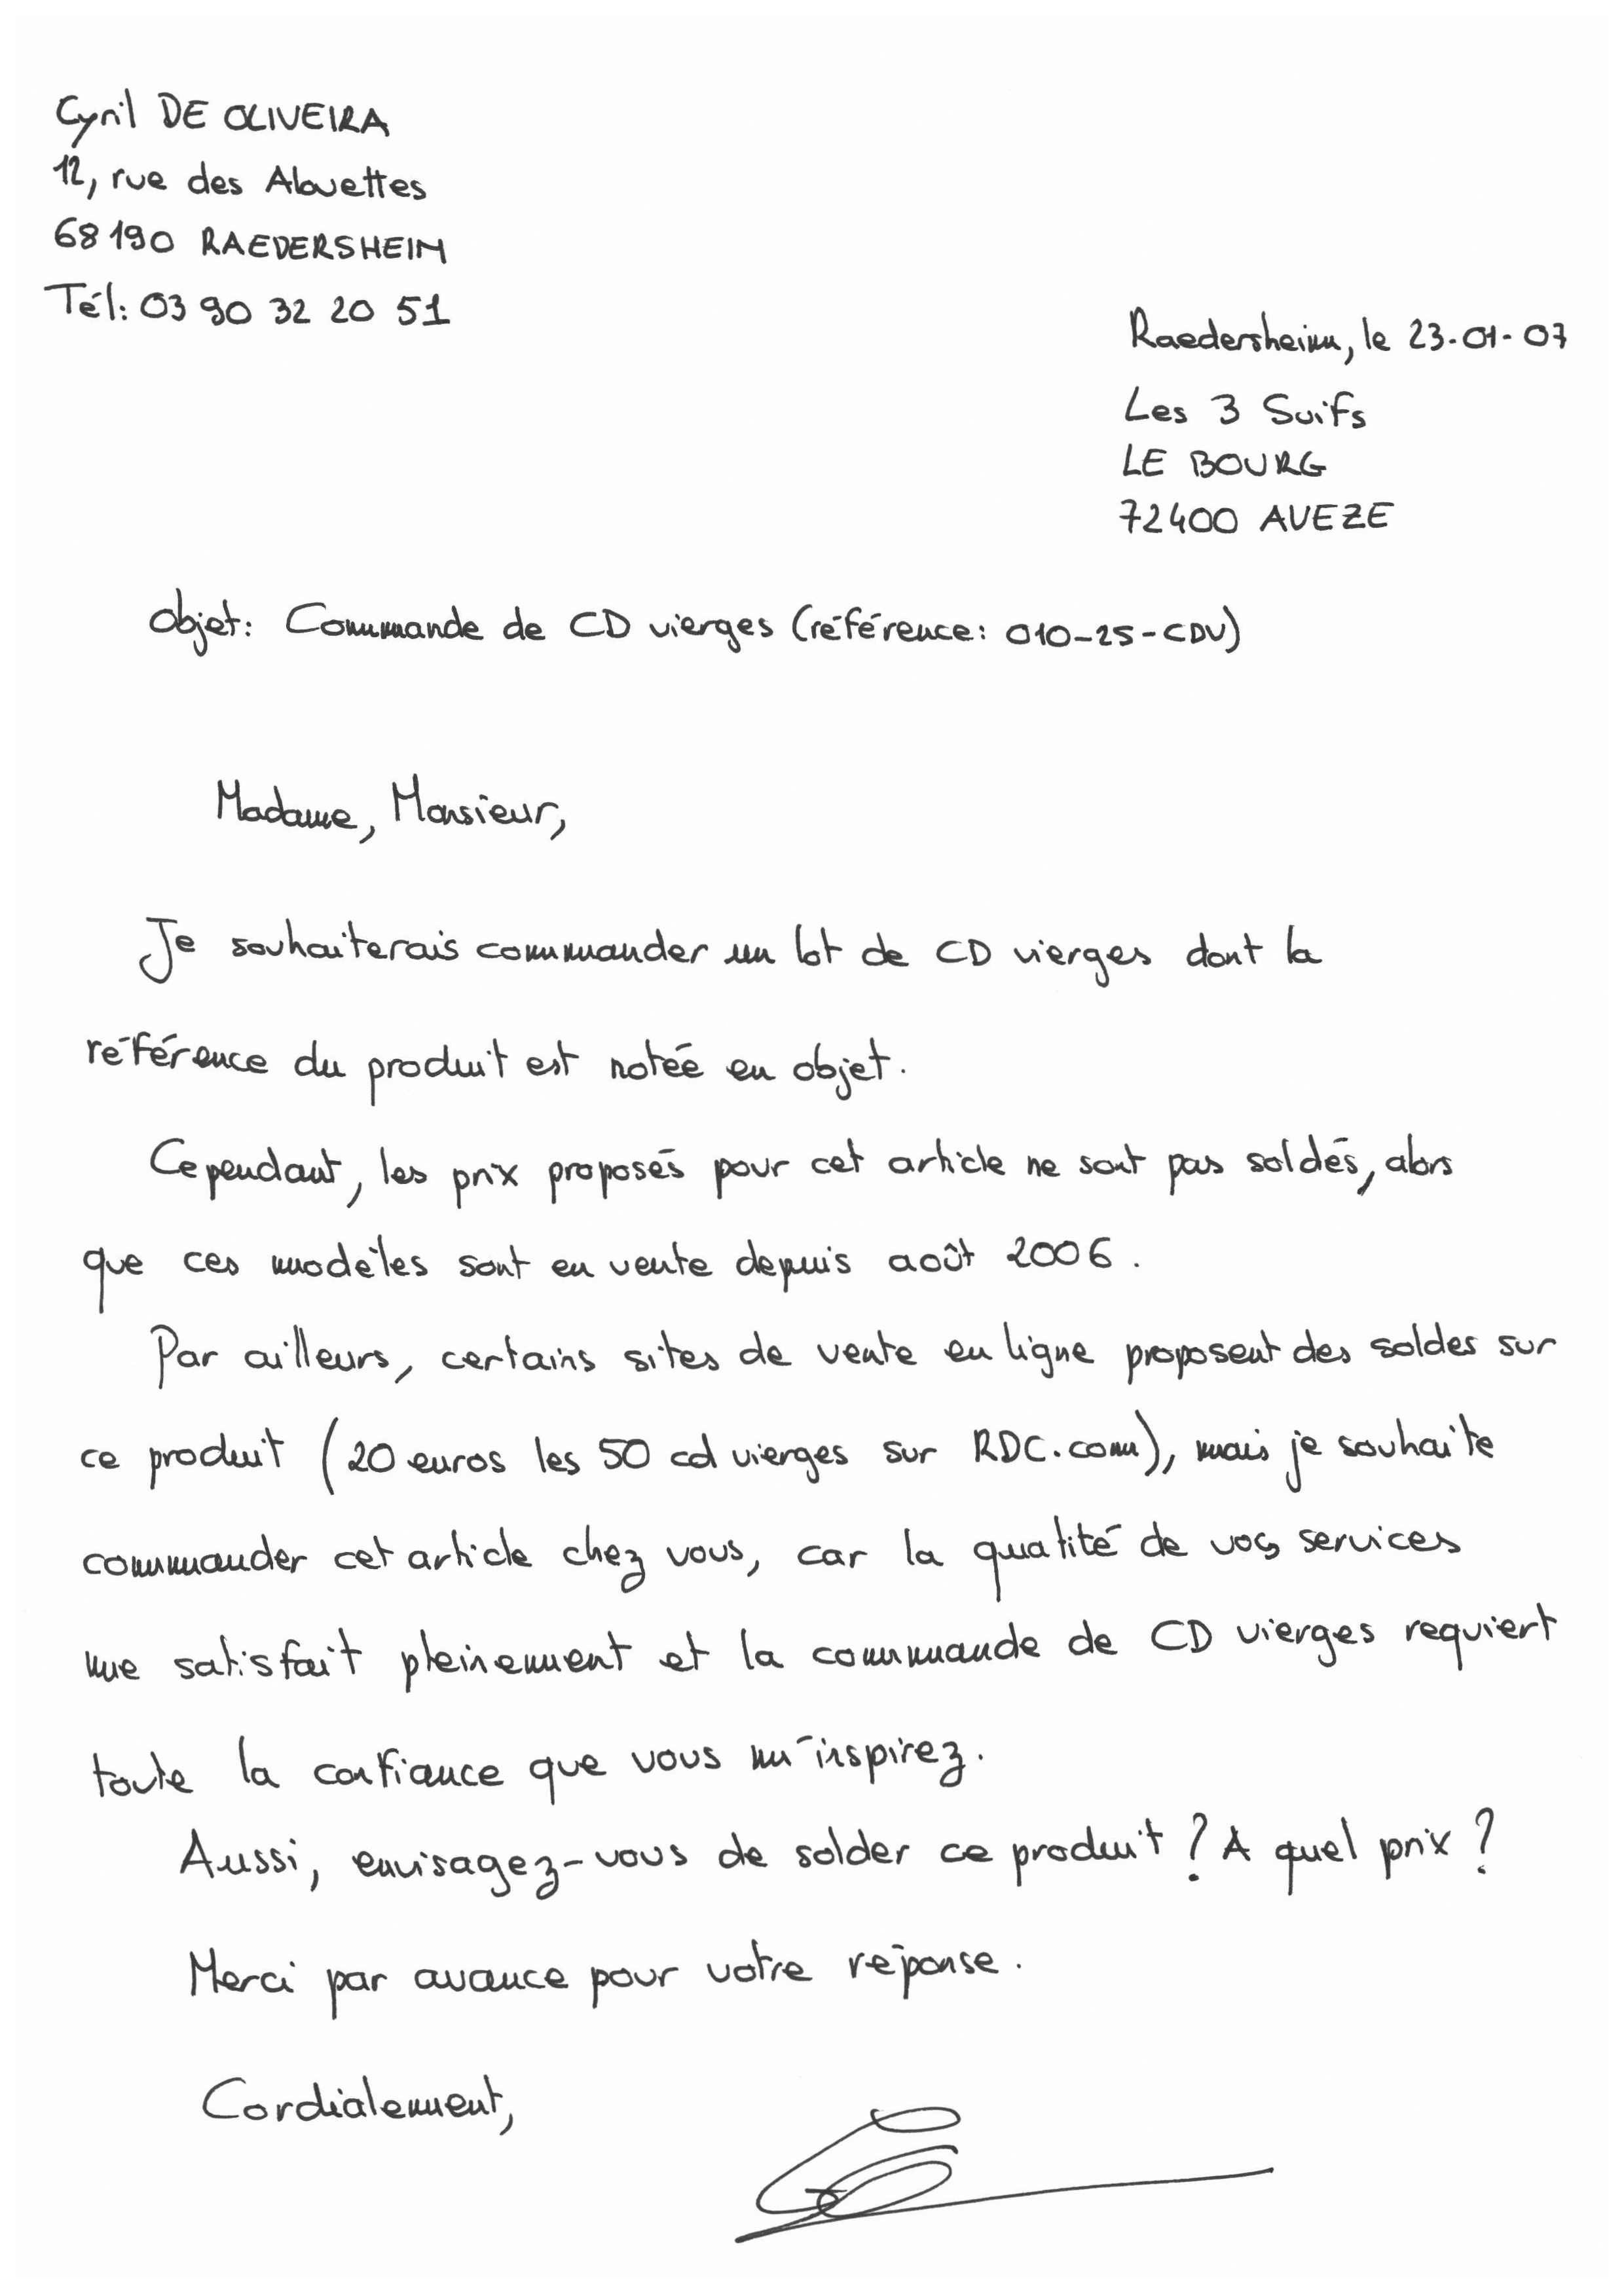 Cyril DE OLIVEIRA
12, rue des Alouettes
68190 RAEDERSHEIM
Tél: 03 90 32 20 51
Raedersheim, le 23-01-07
Les 3 Suifs
LE BOURG
72400 AVEZE
Objet: Commande de CD vierges (référence: 010-25-CDV)
Madame, Monsieur,
Je souhaiterais commander un lot de CD vierges dont la
référence du produit est notée en objet.
Cependant, les prix proposés pour cet article ne sont pas soldés, alors
que ces modèles sont en vente depuis août 2006.
Par ailleurs, certains sites de vente en ligne proposent des soldes sur
ce produit (20 euros les 50 cd vierges sur RDC.com), mais je souhaite
commander cet article chez vous, car la qualité de vos services
me satisfait pleinement et la commande de CD vierges requiert
toute la confiance que vous m'inspirez.
Aussi, envisagez-vous de solder ce produit ? A quel prix ?
Merci par avance pour votre réponse.
Cordialement,